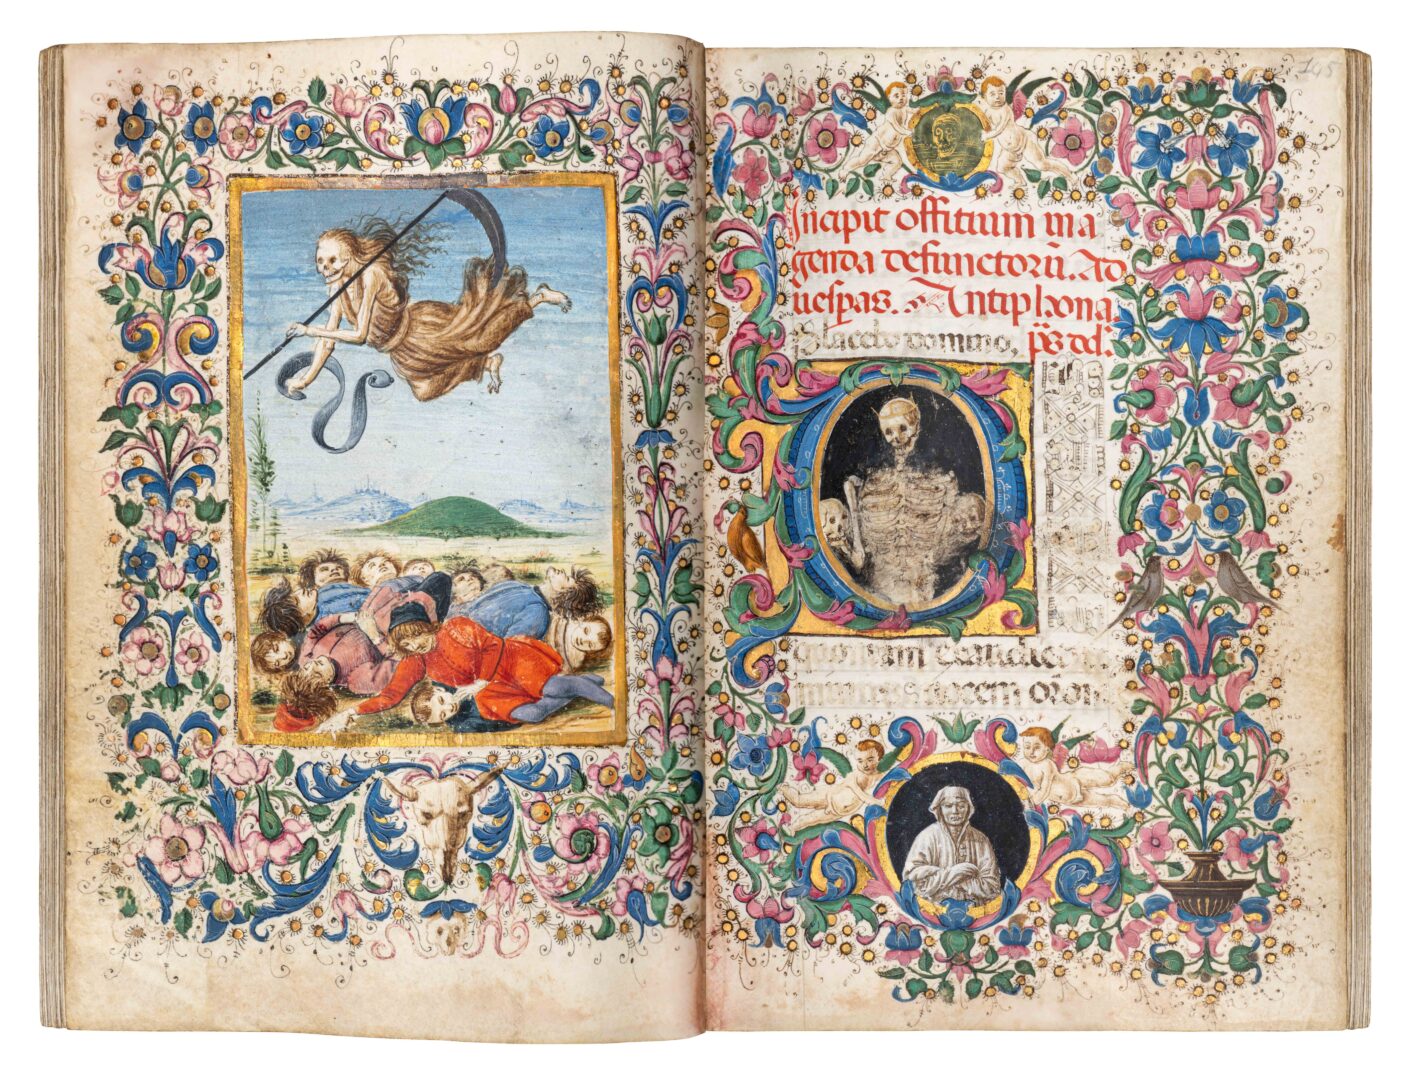 145
Incipit offitium in a
genda defunctorū. Ad
uesp̄as. Antiphona.
Placebo domino, ps̄ dd.
quoniam exaudiet
minus uocem